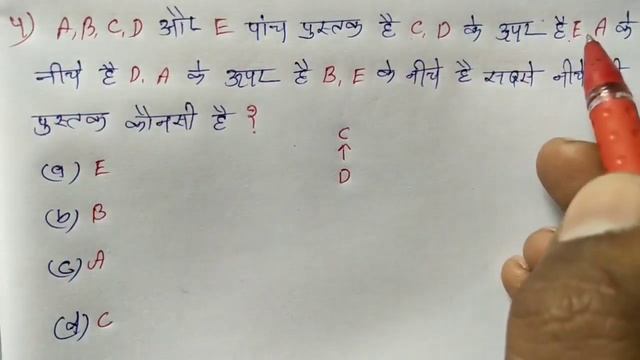 ५) A, B, C, D और E पांच पुस्तक है C, D के ऊपर है. E, A के
नीचे है D, A के ऊपर है B, E के नीचे है सबसे नीचे
पुस्तक कौनसी है ?
(a) E
(b) B
(c) A
(d) C
C
↑
D